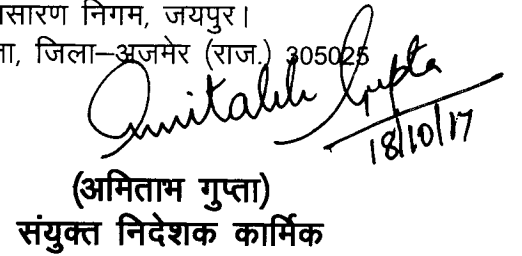 सारण निगम, जयपुर।
ता, जिला–अजमेर (राज.) 305025
Amitabh Gupta
18/10/17
(अमिताभ गुप्ता)
संयुक्त निदेशक कार्मिक